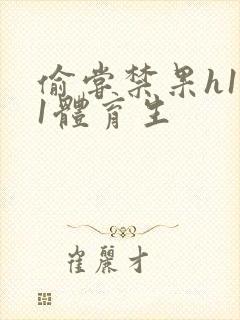 偷嘗禁果h1
1體育生
崔麗才